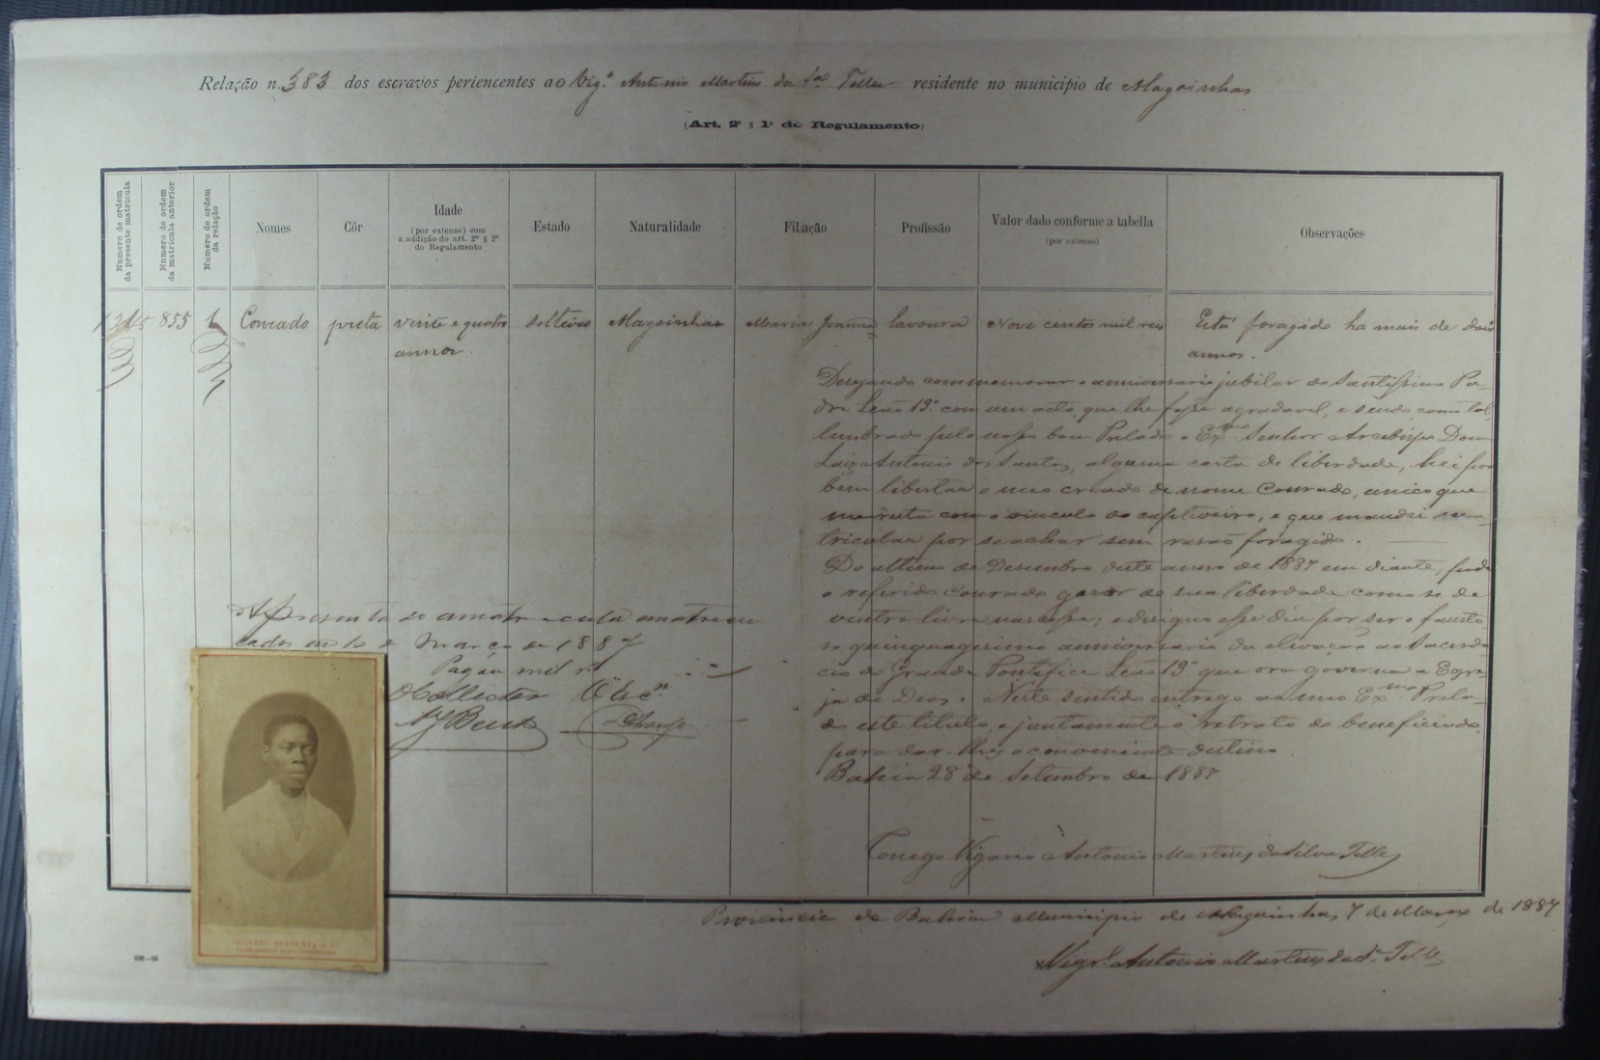 Relação n. 383 dos escravos pertencentes ao Vig.º Antonio Martins da S.ª Telles residente no municipio de Alagoinhas
(Art. 2º § 1º do Regulamento)
Numero de ordem da presente matricula
Numero de ordem da matricula anterior
Numero de ordem da relação
Nomes
Côr
Idade
(por extenso) com
a addição do art. 2º § 2º
do Regulamento
Estado
Naturalidade
Filiação
Profissão
Valor dado conforme a tabella
(por extenso)
Observações
855 1 Conrado preta vinte e quatro solteiro Alagoinhas Maria Joanna lavoura Nove centos mil reis Está foragido ha mais de dois
annos. annos.
Desejando commemorar o anniversario jubilar do Santissimo Pa-
dre Leão 13.º com um acto, que lhe fosse agradavel, e sendo como tal
lembrado pelo nosso bom Prelado o Ex.mo Senhor Arcebispo Dom
Luiz Antonio dos Santos, alguma carta de liberdade, hei por
bem libertar o meo criado de nome Conrado, unico que
me resta com o vinculo do captiveiro, e que mandei ma-
tricular por se achar sem rasão foragido.
Do ultimo de Desembro deste anno de 1887 em diante, pode
o referido Conrado gosar de sua liberdade como se de
ventre livre nascesse; e designo esse dia por ser o fausto-
so quinquagesimo anniversario da elevação ao Sacerdo-
cio do Grande Pontifice Leão 13º que ora governa a Egre-
ja de Deos. Neste sentido entrego ao meo Ex.mo Prela-
do este titulo, e juntamente o retrato do beneficiado,
para dar-lhes o conveniente destino.
Bahia 28 de Setembro de 1887
Conego Vigario Antonio Martins da Silva Telles
Março de 1887
Pagou mil rs
O Collector O Esc.m
Provincia da Bahia Municipio de Alagoinhas, 7 de Março de 1887
Vigr.º Antonio Martins da S.ª Telles